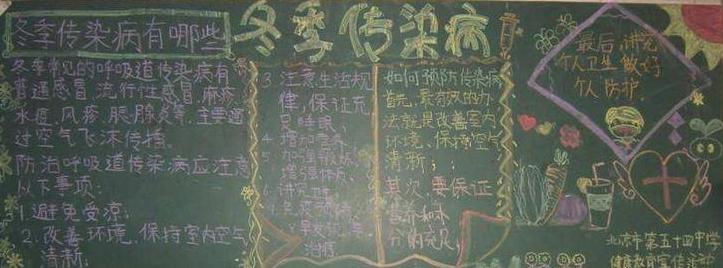 冬季传染病
冬季传染病有哪些
冬季常见的呼吸道传染病有
普通感冒、流行性感冒、麻疹、
水痘、风疹、腮腺炎等,主要通
过空气飞沫传播。
防治呼吸道传染病应注意
以下事项:
1.避免受凉;
2.改善环境,保持室内空气
清新;
3.注意生活规
律,保证充
足睡眠;
4.增加营养
5.加强锻炼,
增强体质;
6.讲究卫生
治疗
如何预防传染病
首先,最有效的办
法就是改善室内
环境、保持空气
清新;
其次,要保证
营养和水
分的充足
最后,讲究
个人卫生,做好
个人防护.
北京市第五十四中学